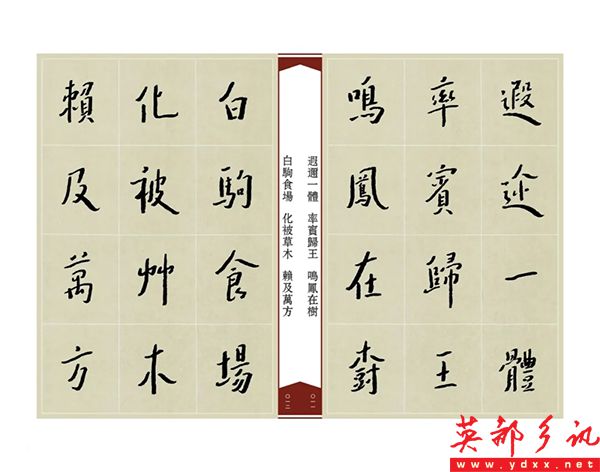 遐迩一體
率賓歸王
鳴鳳在樹
遐邇一體 率賓歸王 鳴鳳在樹
白駒食場 化被草木 賴及萬方
白駒食場
化被艸木
賴及萬方
英都乡讯
www.ydxx.net